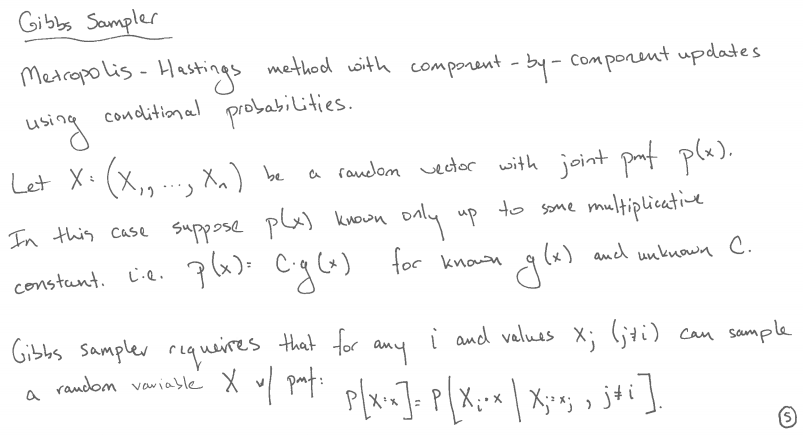 Gibbs Sampler
Metropolis-Hastings method with component-by-component updates
using conditional probabilities.
Let X=(X₁, ..., Xₙ) be a random vector with joint pmf p(x).
In this case suppose p(x) known only up to some multiplicative
constant. i.e. p(x)= C·g(x) for known g(x) and unknown C.
Gibbs Sampler requires that for any i and values xⱼ (j≠i) can sample
a random variable X w/ pmf: P[X=x]= P[Xᵢ=x | Xⱼ=xⱼ, j≠i].
5